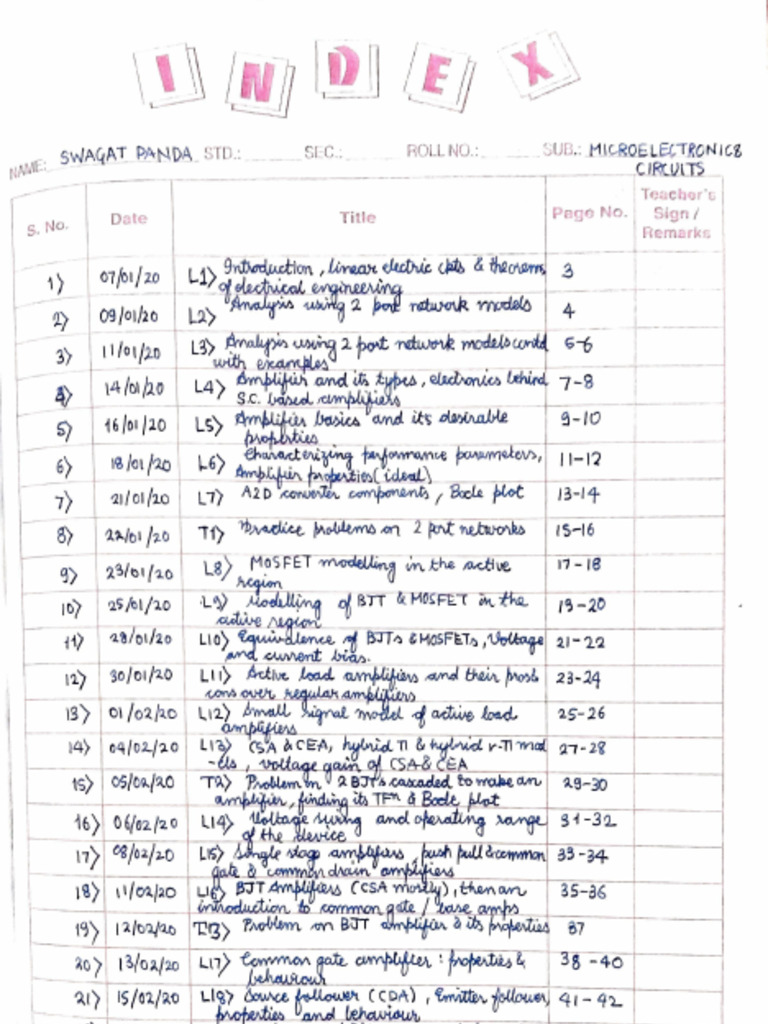 INDEX
NAME: SWAGAT PANDA STD.: SEC.: ROLL NO.: SUB.: MICROELECTRONICS
CIRCUITS
S. No. Date Title Page No. Teacher's Sign / Remarks
1) 07/01/20 L1) Introduction, linear electric ckts & theorems 3
of electrical engineering
2) 09/01/20 L2) Analysis using 2 port network models 4
3) 11/01/20 L3) Analysis using 2 port network models contd 5-6
with examples
4) 14/01/20 L4) Amplifier and its types, electronics behind 7-8
S.C. based amplifiers
5) 16/01/20 L5) Amplifier basics and its desirable 9-10
properties
6) 18/01/20 L6) Characterizing performance parameters, 11-12
Amplifier properties (ideal)
7) 21/01/20 L7) A2D converter components, Bode plot 13-14
8) 22/01/20 T1) Practice problems on 2 port networks 15-16
9) 23/01/20 L8) MOSFET modelling in the active 17-18
region
10) 25/01/20 L9) Modelling of BJT & MOSFET in the 19-20
active region
11) 28/01/20 L10) Equivalence of BJTs & MOSFETs, Voltage 21-22
and current bias.
12) 30/01/20 L11) Active load amplifiers and their pros & 23-24
cons over regular amplifiers
13) 01/02/20 L12) Small signal model of active load 25-26
amplifiers
14) 04/02/20 L13) CSA & CEA, hybrid π & hybrid r-π mod 27-28
-els, voltage gain of CSA & CEA
15) 05/02/20 T2) Problem on 2 BJTs cascaded to make an 29-30
amplifier, finding its TFn & Bode plot
16) 06/02/20 L14) Voltage swing and operating range 31-32
of the device
17) 08/02/20 L15) Single stage amplifiers, push pull & common 33-34
gate & common drain amplifiers
18) 11/02/20 L16) BJT Amplifiers (CSA mostly), then an 35-36
introduction to common gate / base amps
19) 12/02/20 T3) Problem on BJT amplifier & its properties 37
20) 13/02/20 L17) Common gate amplifier : properties & 38-40
behaviour
21) 15/02/20 L18) Source follower (CDA), Emitter follower, 41-42
properties and behaviour